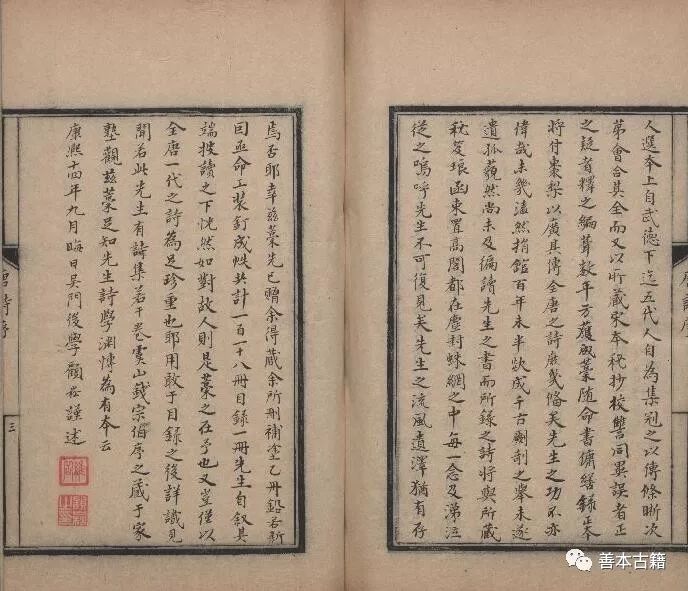 人選本上自武德下迄五代人自為集冠之以傳條晰次
第會合其全而又以所藏宋本秘抄挍讐同異誤者正
之疑者釋之編葺數年方獲成藁随命書傭繕錄正本
將付棗梨以廣其傳全唐之詩庶幾備矣先生之功不亦
偉哉未幾溘然捐館百年未半欻成千古劂剞之舉未遂
遺孤藐然尚未及編諸先生之書而所錄之詩將與所藏
秘笈琅函束置高閣都在塵封蛛網之中每一念及涕泣
從之嗚呼先生不可復見矣先生之流風遺澤猶有存
焉否耶幸茲藁先已贈余得藏余所刪補塗乙丹鉛若新
囙亟命工裝釘成帙共計一百一十八冊目錄一冊先生自叙具
端披讀之下恍然如對故人則是藁之在予也又豈僅以
全唐一代之詩為足珍重也耶用敢于目録之後詳識見
聞若此先生有詩集若干卷虞山錢宗伯序之藏于家
塾觀茲藁足知先生詩學淵博為有本云
康熙十四年九月晦日吳門後學顧 謹述
唐詩序
三
善本古籍